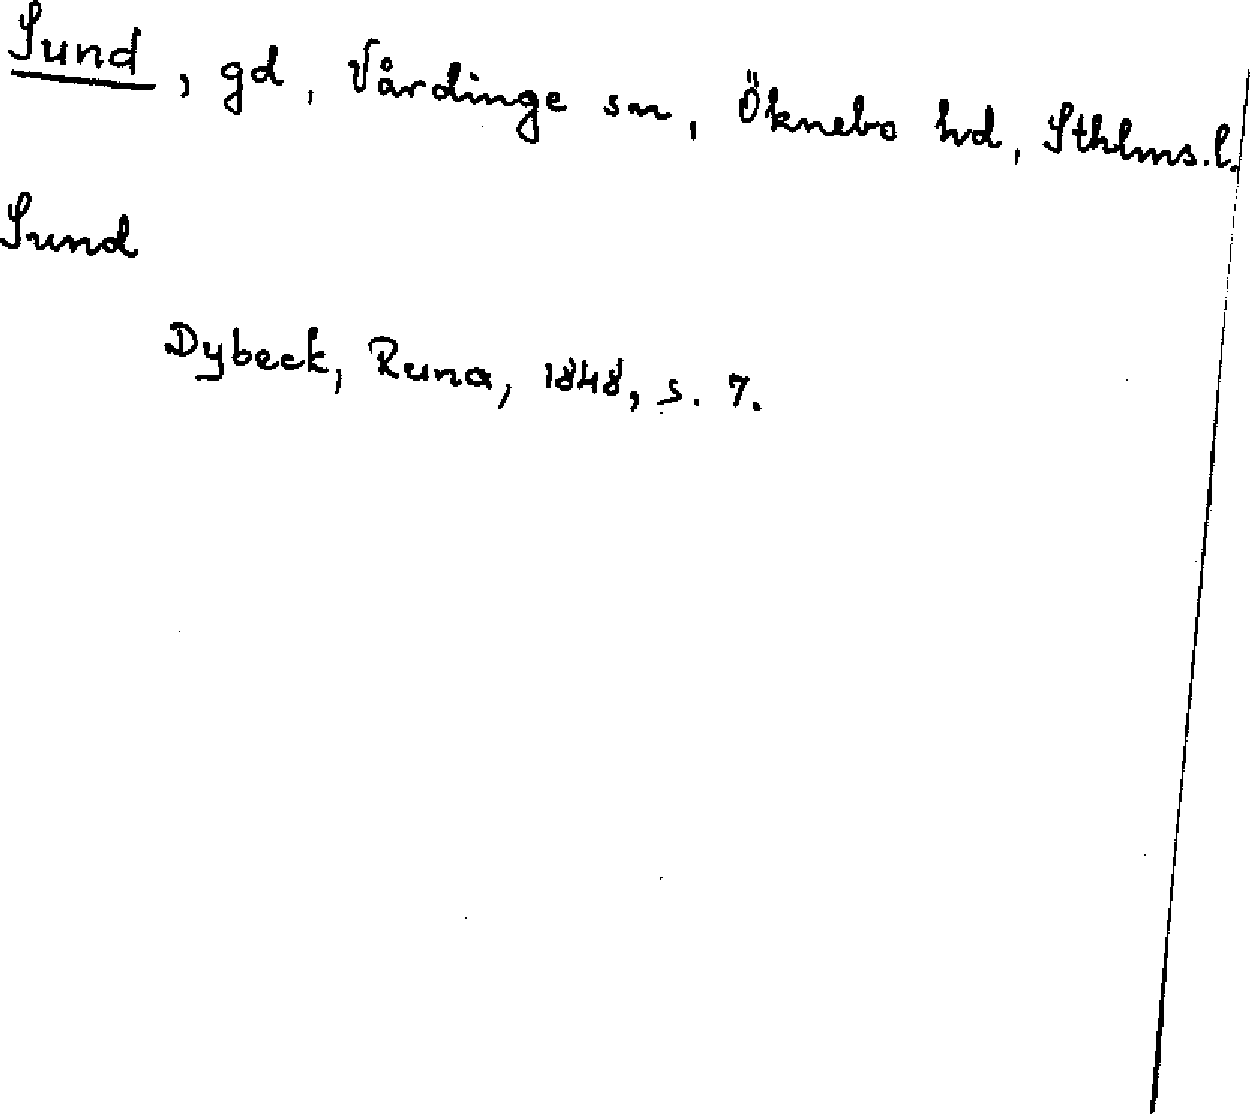 Sund, gd, Vårdinge sn, Öknebo hd, Sthlms.l.
Sund
Dybeck, Runa, 1848, s. 7.